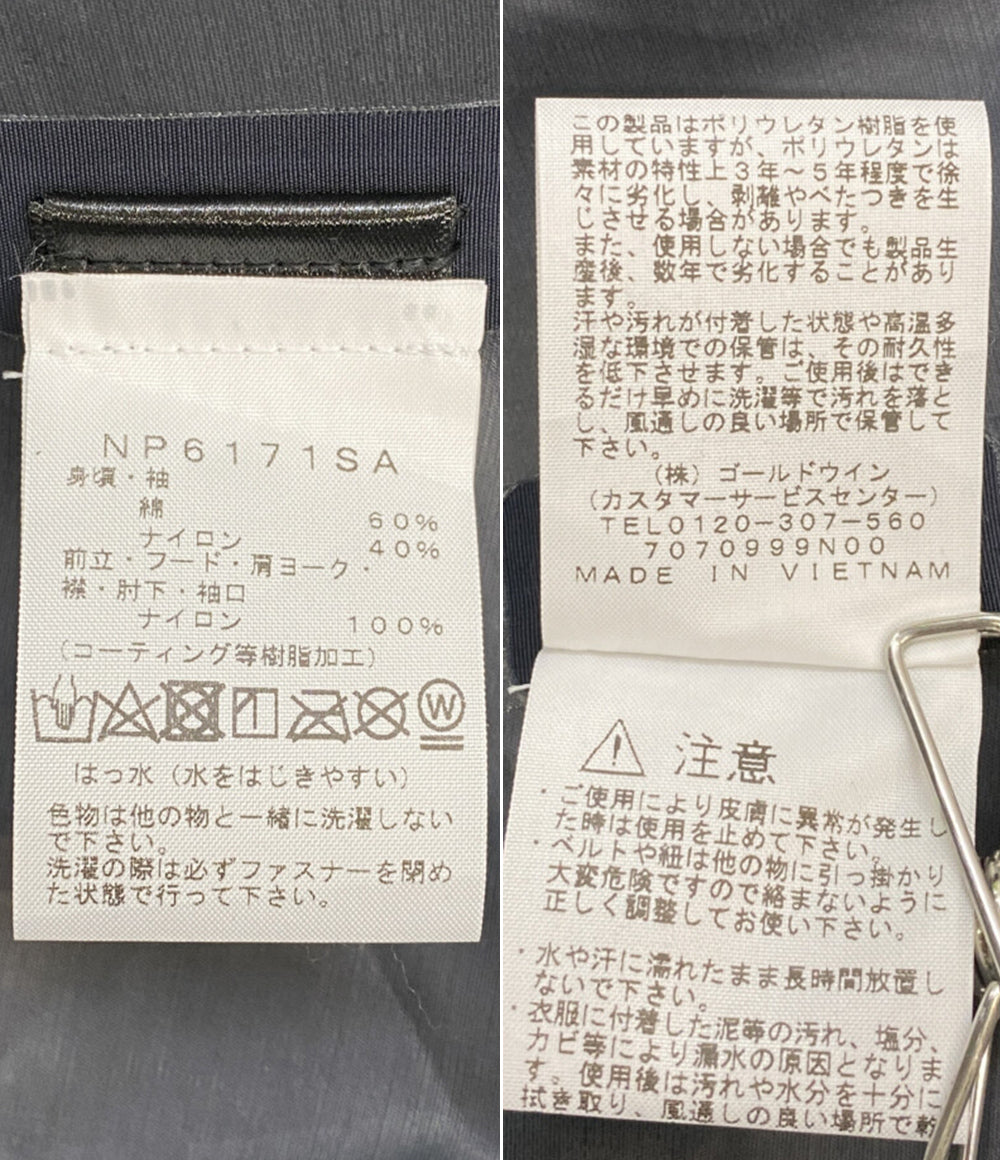 NP6171SA
身頃・袖
綿 60%
ナイロン 40%
前立・フード・肩ヨーク・
襟・肘下・袖口
ナイロン 100%
(コーティング等樹脂加工)
W
はっ水(水をはじきやすい)
色物は他の物と一緒に洗濯しない
で下さい。
洗濯の際は必ずファスナーを閉め
た状態で行って下さい。
この製品はポリウレタン樹脂を使
用していますが、ポリウレタンは
素材の特性上3年~5年程度で徐
々に劣化し、剥離やべたつきを生
じさせる場合があります。
また、使用しない場合でも製品生
産後、数年で劣化することがあり
ます。
汗や汚れが付着した状態や高温多
湿な環境での保管は、その耐久性
を低下させます。ご使用後はでき
るだけ早めに洗濯等で汚れを落と
し、風通しの良い場所で保管して
下さい。
(株)ゴールドウイン
(カスタマーサービスセンター)
TEL0120-307-560
7070999N00
MADE IN VIETNAM
注意
・ご使用により皮膚に異常が発生し
た時は使用を止めて下さい。
・ベルトや紐は他の物に引っ掛かり
大変危険ですので絡まないように
正しく調整してお使い下さい。
・水や汗に濡れたまま長時間放置し
ないで下さい。
・衣服に付着した泥等の汚れ、塩分、
カビ等により漏水の原因となりま
す。使用後は汚れや水分を十分に
拭き取り、風通しの良い場所で乾